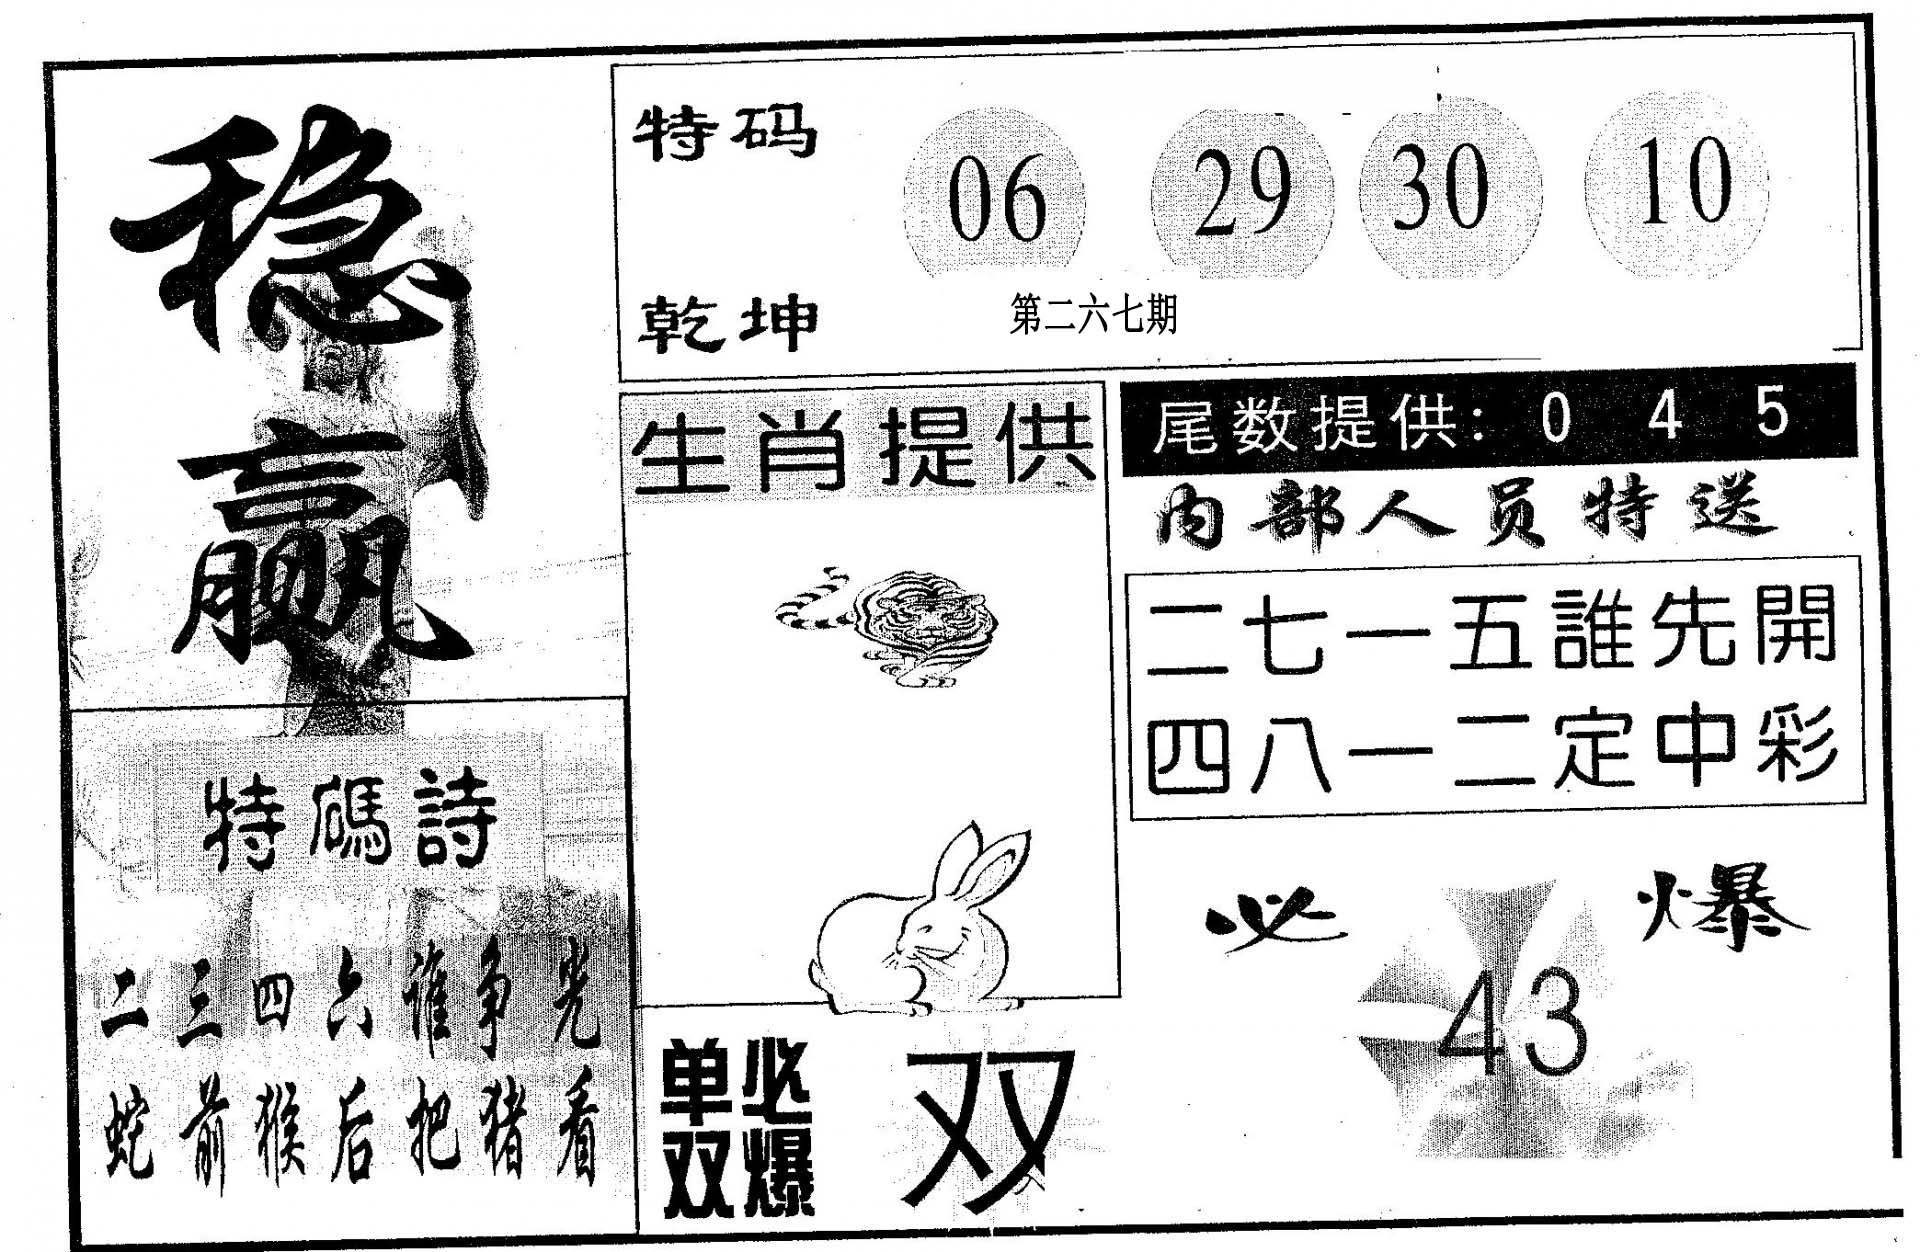 稳
赢
特码 06 29 30 10
乾坤 第二六七期
生肖提供
尾数提供: 0 4 5
内部人员特送
二七一五誰先開
四八一二定中彩
特碼詩
二三四六谁争光
蛇前猴后把猪看
必爆
43
单双必爆
双